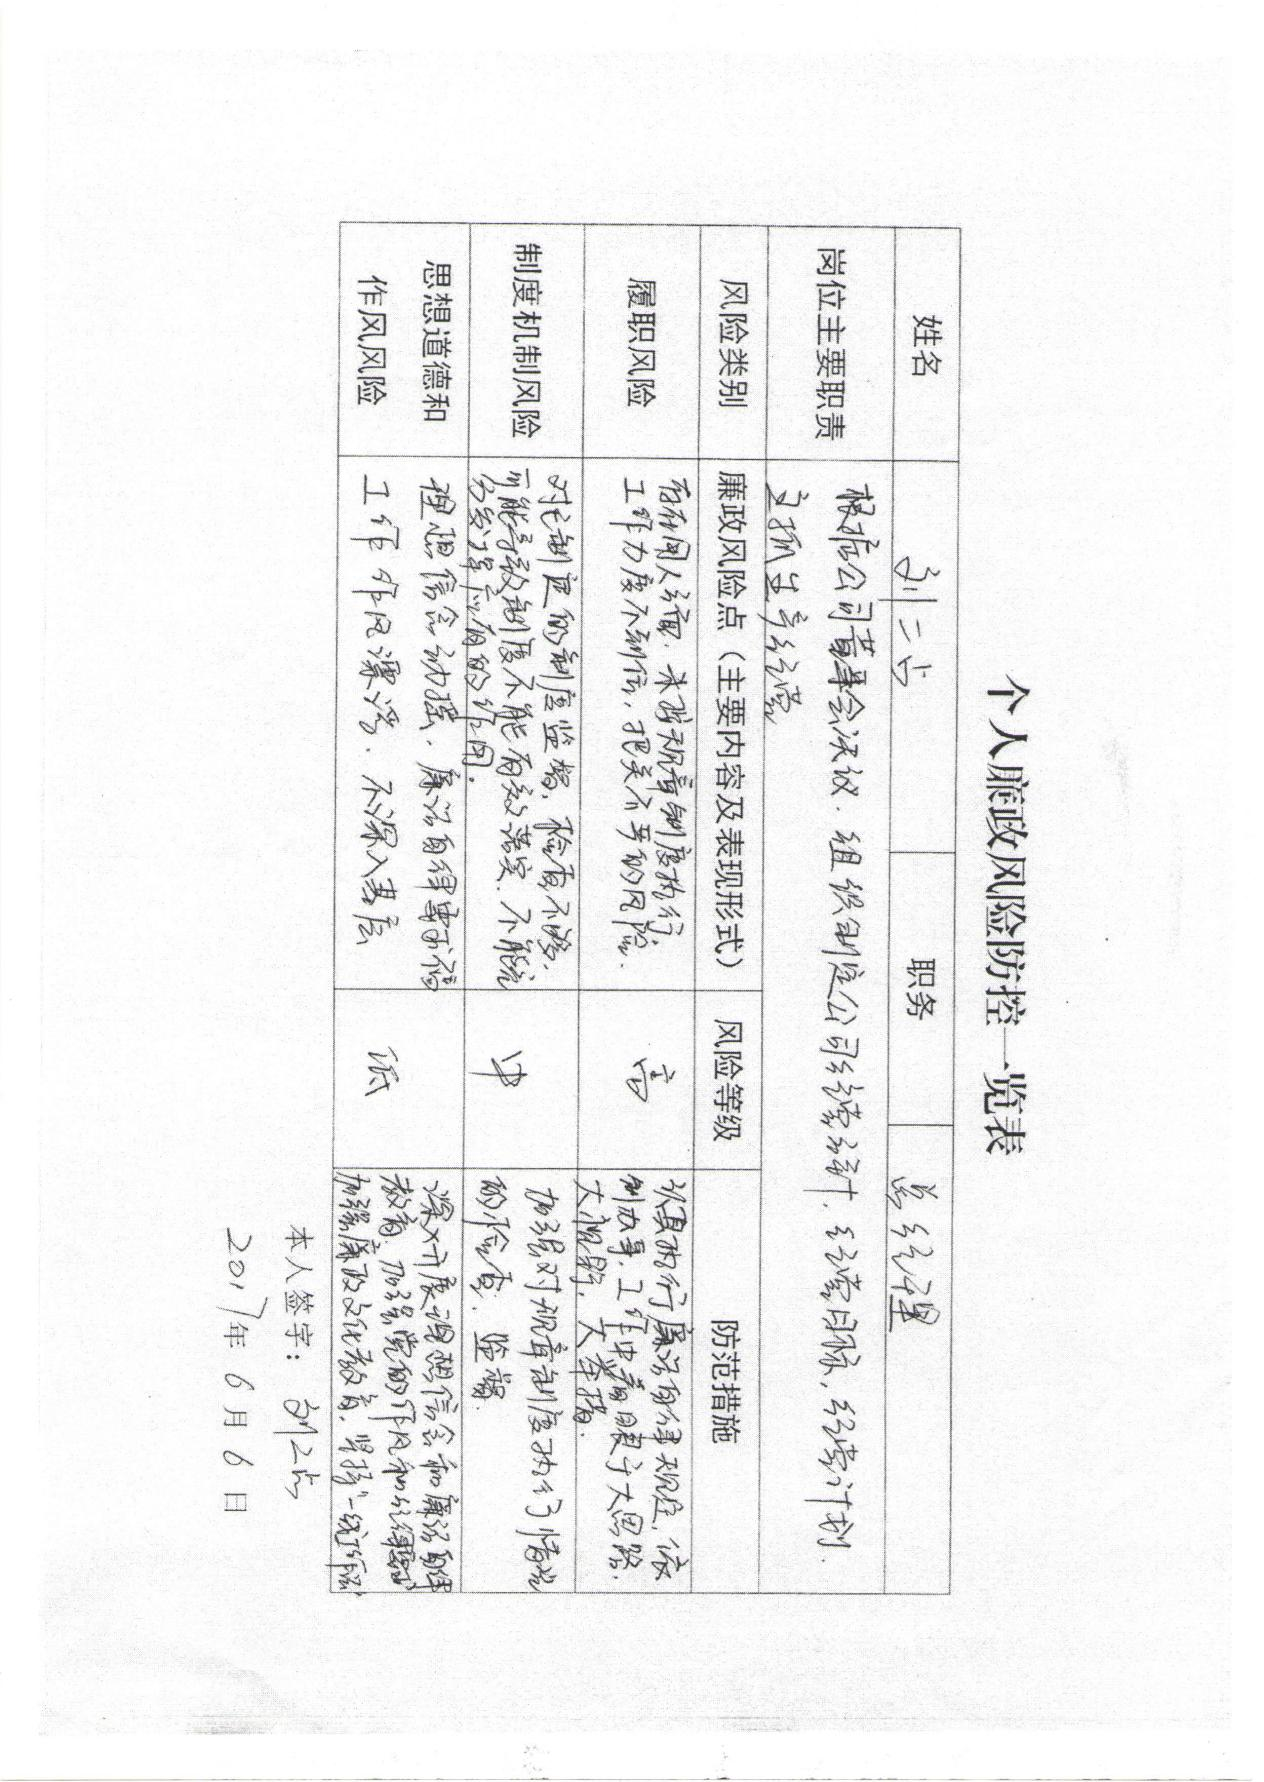 个人廉政风险防控一览表
姓名 刘二占 职务 总经理
岗位主要职责
根据公司董事会决议、组织制定公司经营设计、经营目标、经营计划.
主抓生产经营
风险类别 廉政风险点（主要内容及表现形式） 风险等级 防范措施
履职风险
存在
未按规章制度执行
工作力度不到位，把关不严的风险.
高
认真执行廉洁自律规定，依
制办事，工作中着眼于大思路、
大视野、大举措.
制度机制风险
对已制定的制度监督、检查不够，
可能导致制度不能有效落实、不能充
分发挥应有的作用。
中
加强对规章制度执行情况
的检查、监督.
思想道德和
作风风险
理想信念动摇、廉洁自律要求不高
工作作风漂浮、不深入基层
低
深入开展理想信念和廉洁自律
教育，加强党的作风和纪律
加强廉政文化教育，坚持“一线工作法”
本人签字：刘二占
2017年6月6日